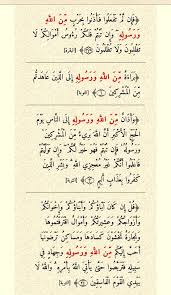 ﴿فَإِن لَّمْ تَفْعَلُوا۟ فَأْذَنُوا۟ بِحَرْبٍ مِّنَ ٱللَّهِ
وَرَسُولِهِۦ وَإِن تُبْتُمْ فَلَكُمْ رُءُوسُ أَمْوَٰلِكُمْ لَا
تَظْلِمُونَ وَلَا تُظْلَمُونَ﴾ [البقرة]
﴿بَرَآءَةٌ مِّنَ ٱللَّهِ وَرَسُولِهِۦٓ إِلَى ٱلَّذِينَ عَٰهَدتُّم
مِّنَ ٱلْمُشْرِكِينَ﴾ [التوبة]
﴿وَأَذَٰنٌ مِّنَ ٱللَّهِ وَرَسُولِهِۦٓ إِلَى ٱلنَّاسِ يَوْمَ
ٱلْحَجِّ ٱلْأَكْبَرِ أَنَّ ٱللَّهَ بَرِىٓءٌ مِّنَ ٱلْمُشْرِكِينَ
وَرَسُولُهُۥ فَإِن تُبْتُمْ فَهُوَ خَيْرٌ لَّكُمْ وَإِن تَوَلَّيْتُمْ
فَٱعْلَمُوٓا۟ أَنَّكُمْ غَيْرُ مُعْجِزِى ٱللَّهِ وَبَشِّرِ ٱلَّذِينَ
كَفَرُوا۟ بِعَذَابٍ أَلِيمٍ﴾ [التوبة]
﴿قُلْ إِن كَانَ ءَابَآؤُكُمْ وَأَبْنَآؤُكُمْ وَإِخْوَٰنُكُمْ
وَأَزْوَٰجُكُمْ وَعَشِيرَتُكُمْ وَأَمْوَٰلٌ ٱقْتَرَفْتُمُوهَا
وَتِجَٰرَةٌ تَخْشَوْنَ كَسَادَهَا وَمَسَٰكِنُ تَرْضَوْنَهَآ
أَحَبَّ إِلَيْكُم مِّنَ ٱللَّهِ وَرَسُولِهِۦ وَجِهَادٍ فِى
سَبِيلِهِۦ فَتَرَبَّصُوا۟ حَتَّىٰ يَأْتِىَ ٱللَّهُ بِأَمْرِهِۦ وَٱللَّهُ لَا
يَهْدِى ٱلْقَوْمَ ٱلْفَٰسِقِينَ